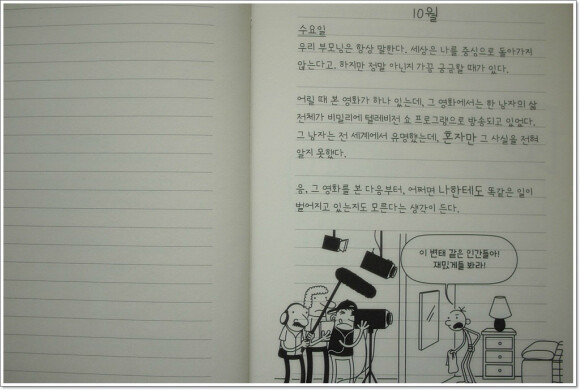 10월
수요일
우리 부모님은 항상 말한다. 세상은 나를 중심으로 돌아가지
않는다고. 하지만 정말 아닌지 가끔 궁금할 때가 있다.
어릴 때 본 영화가 하나 있는데, 그 영화에서는 한 남자의 삶
전체가 비밀리에 텔레비전 쇼 프로그램으로 방송되고 있었다.
그 남자는 전 세계에서 유명했는데, 혼자만 그 사실을 전혀
알지 못했다.
음, 그 영화를 본 다음부터, 어쩌면 나한테도 똑같은 일이
벌어지고 있는지도 모른다는 생각이 든다.
이 변태 같은 인간들아!
재밌게들 봐라!